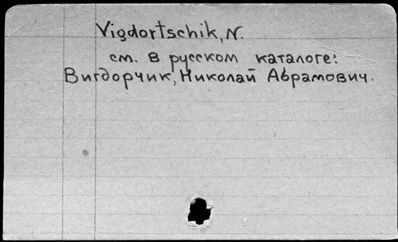 Vigdortschik, N.
см. в русском каталоге:
Вигдорчик, Николай Абрамович.